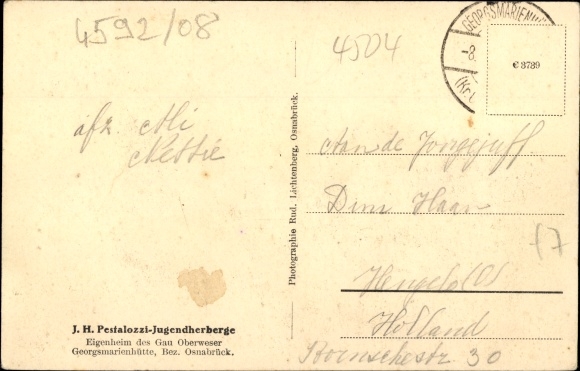 4592/08
4504
GEORGSMARIENH
-8.
(Kr.
€ 3789
afz. Ali
Nettie
Photographie Rud. Lichtenberg, Osnabrück.
Aan de
Dina Haan
Hengelo (O)
Holland
30
17
J. H. Pestalozzi-Jugendherberge
Eigenheim des Gau Oberweser
Georgsmarienhütte, Bez. Osnabrück.